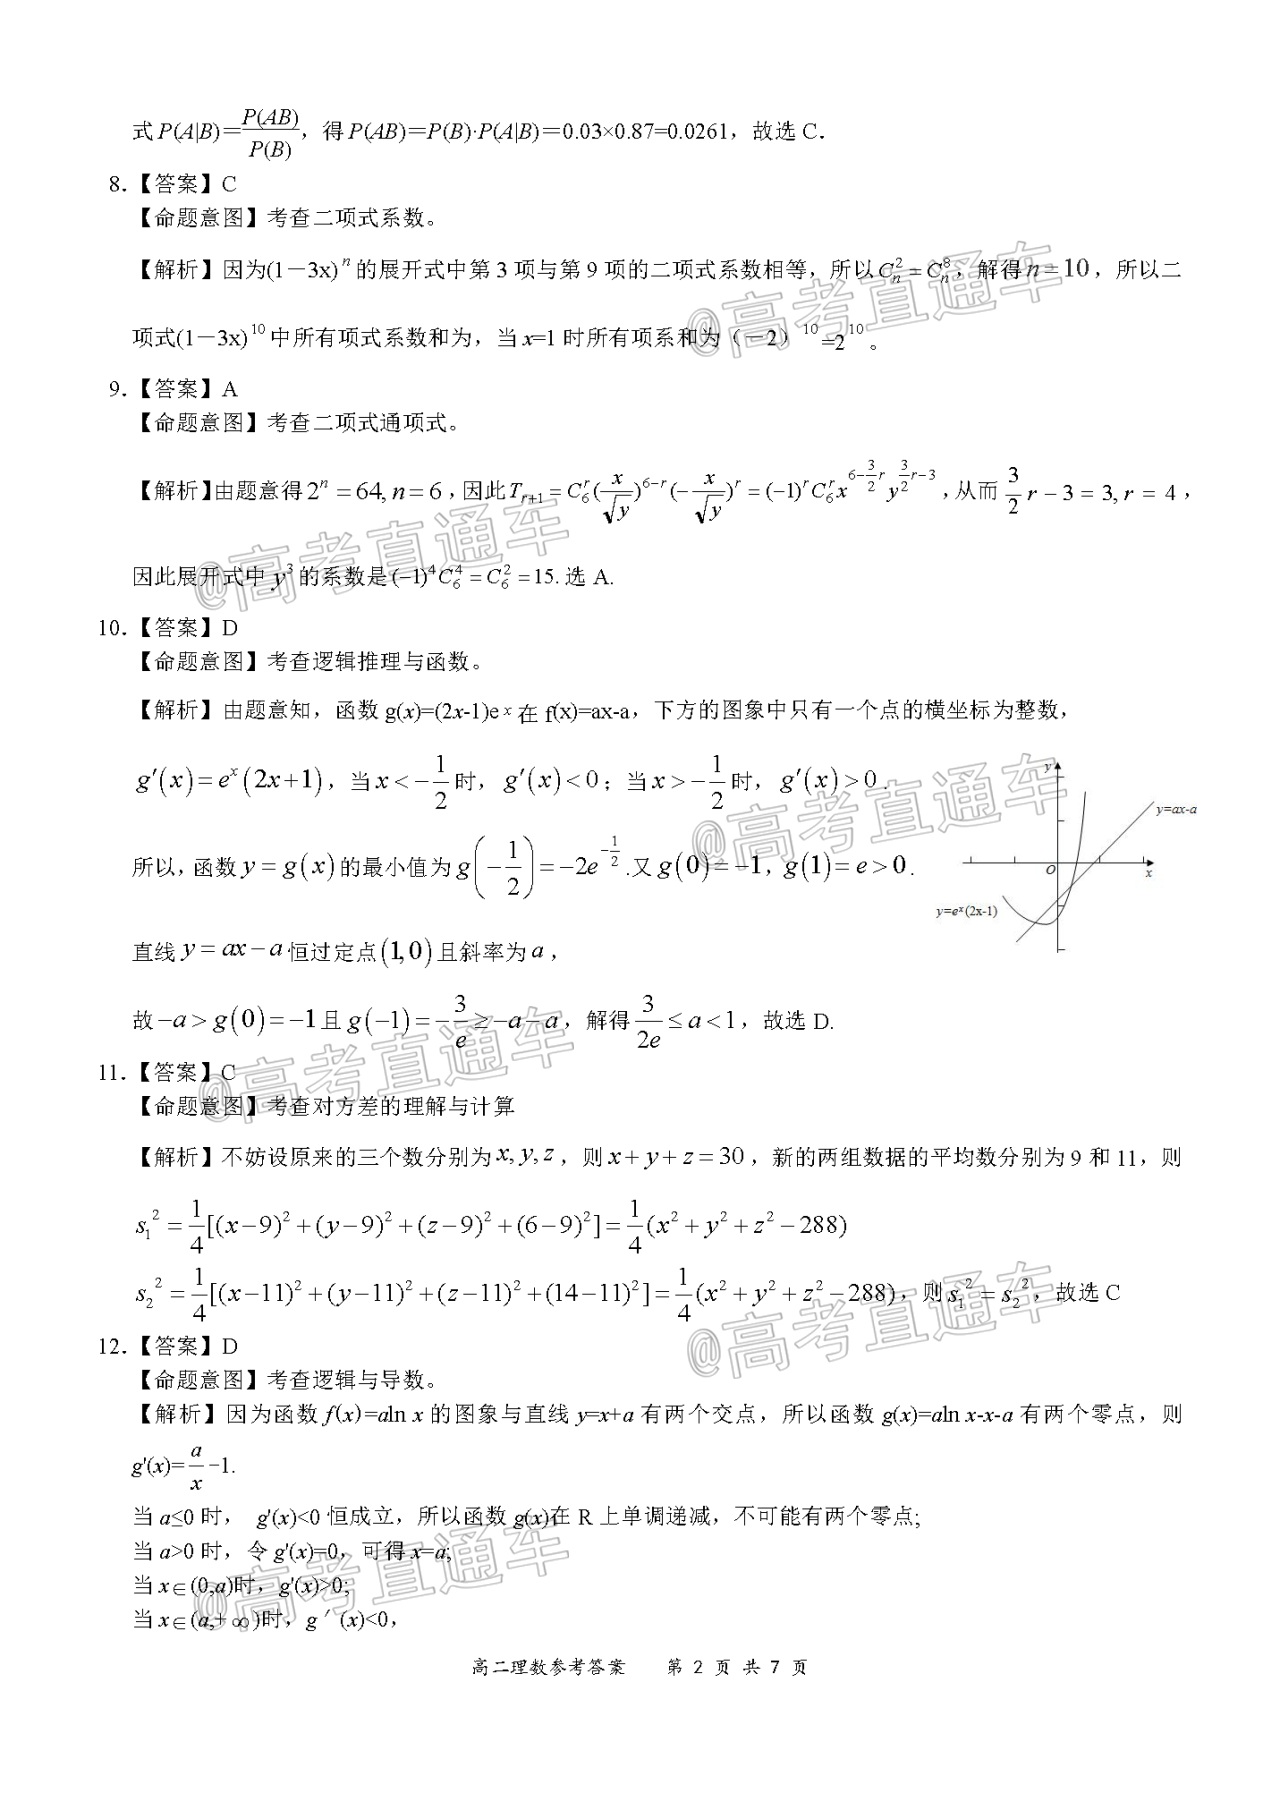 式P(A|B)=P(AB)/P(B)，得P(AB)=P(B)·P(A|B)=0.03×0.87=0.0261，故选 C．
8.【答案】C
【命题意图】考查二项式系数。
【解析】因为(1－3x)^n 的展开式中第 3 项与第 9 项的二项式系数相等，所以 C_n^2 = C_n^8，解得 n=10，所以二
项式(1－3x)^10 中所有项式系数和为，当 x=1 时所有项系和为（－2）^10 =2^10。
9.【答案】A
【命题意图】考查二项式通项式。
【解析】由题意得 2^n = 64, n = 6，因此 T_{r+1} = C_6^r (x/√y)^{6-r} (-x/√y)^r = (-1)^r C_6^r x^{6-3/2 r} y^{3/2 r-3}，从而 3/2 r - 3 = 3, r = 4，
因此展开式中 y^3 的系数是 (-1)^4 C_6^4 = C_6^2 = 15. 选 A.
10.【答案】D
【命题意图】考查逻辑推理与函数。
【解析】由题意知，函数 g(x)=(2x-1)e^x 在 f(x)=ax-a，下方的图象中只有一个点的横坐标为整数，
g′(x)=e^x(2x+1)，当 x<-1/2 时， g′(x)<0；当 x>-1/2 时， g′(x)>0.
所以，函数 y=g(x) 的最小值为 g(-1/2)=-2e^{-1/2}.又 g(0)=-1，g(1)=e>0.
直线 y=ax-a 恒过定点(1,0)且斜率为 a，
故 -a>g(0)=-1 且 g(-1)=-3/e≥-a-a，解得 3/2e≤a<1，故选 D.
y
y=ax-a
O
x
y=e^x(2x-1)
11.【答案】C
【命题意图】考查对方差的理解与计算
【解析】不妨设原来的三个数分别为 x, y, z，则 x+y+z=30，新的两组数据的平均数分别为 9 和 11，则
s_1^2=1/4[(x-9)^2+(y-9)^2+(z-9)^2+(6-9)^2]=1/4(x^2+y^2+z^2-288)
s_2^2=1/4[(x-11)^2+(y-11)^2+(z-11)^2+(14-11)^2]=1/4(x^2+y^2+z^2-288)，则 s_1^2=s_2^2，故选 C
12.【答案】D
【命题意图】考查逻辑与导数。
【解析】因为函数 f(x)=aln x 的图象与直线 y=x+a 有两个交点，所以函数 g(x)=aln x-x-a 有两个零点，则
g'(x)=a/x-1.
当 a≤0 时， g'(x)<0 恒成立，所以函数 g(x)在 R 上单调递减，不可能有两个零点;
当 a>0 时，令 g'(x)=0，可得 x=a;
当 x∈(0,a)时，g'(x)>0;
当 x∈(a,+∞)时，g′(x)<0，
高二理数参考答案 第 2 页 共 7 页
@高考直通车
@高考直通车
@高考直通车
@高考直通车
@高考直通车
@高考直通车